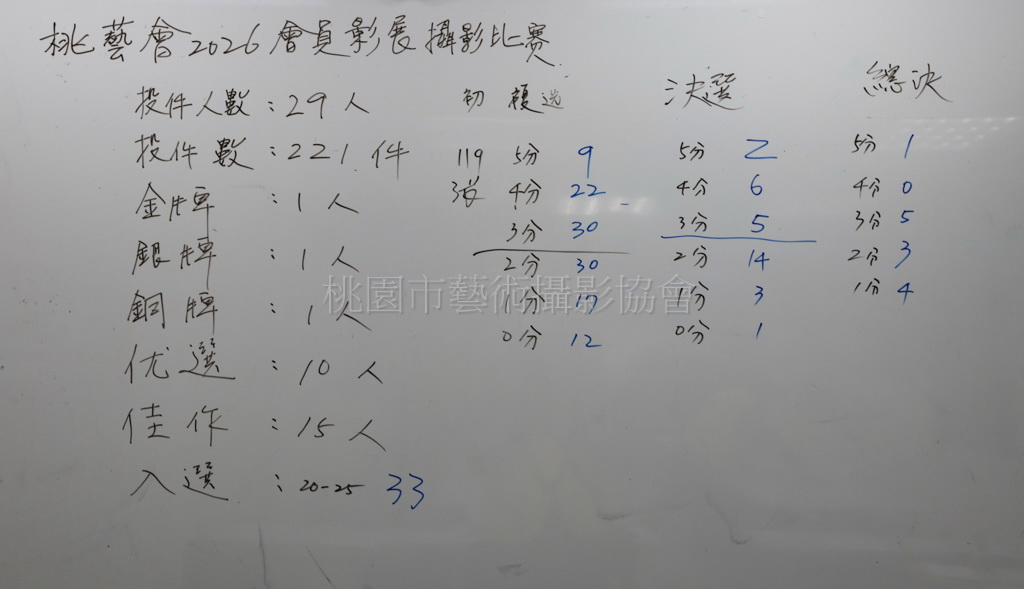 桃藝會2026會員影展攝影比賽
投件人數：29人
投件數：221件
金牌：1人
銀牌：1人
銅牌：1人
优選：10人
佳作：15人
入選：20-25 33
初 複選
119 5分 9
張 4分 22
3分 30
2分 30
1分 17
0分 12
決選
5分 2
4分 6
3分 5
2分 14
1分 3
0分 1
總決
5分 1
4分 0
3分 5
2分 3
1分 4
桃園市藝術攝影協會